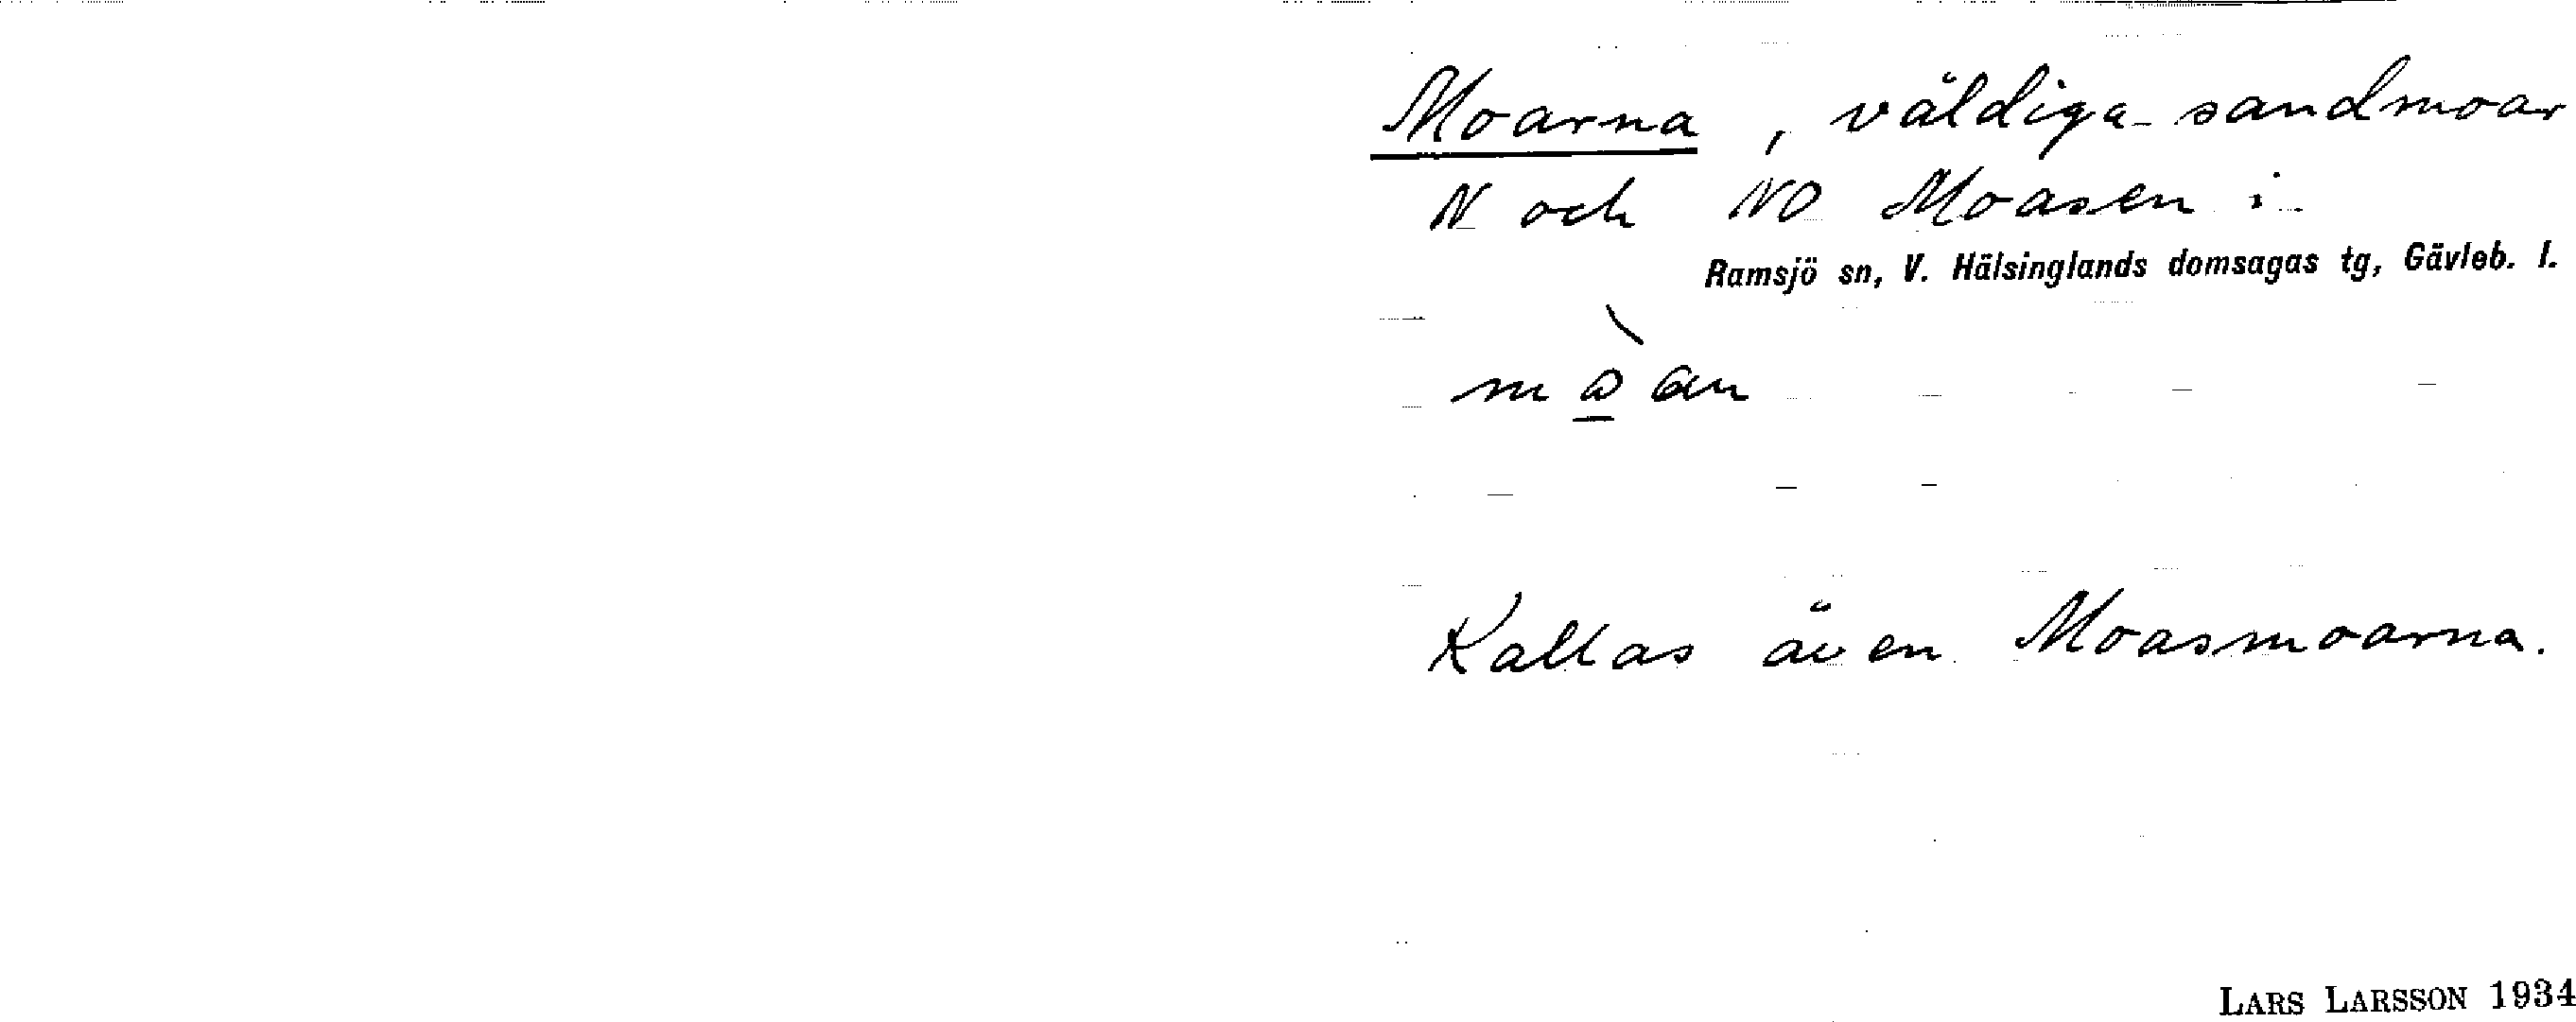 Moarna, väldiga sandmoar
N och NO Moasen i
Ramsjö sn, V. Hälsinglands domsagas tg, Gävleb. l.
Kallas även Moasmoarna.
LARS LARSSON 1934